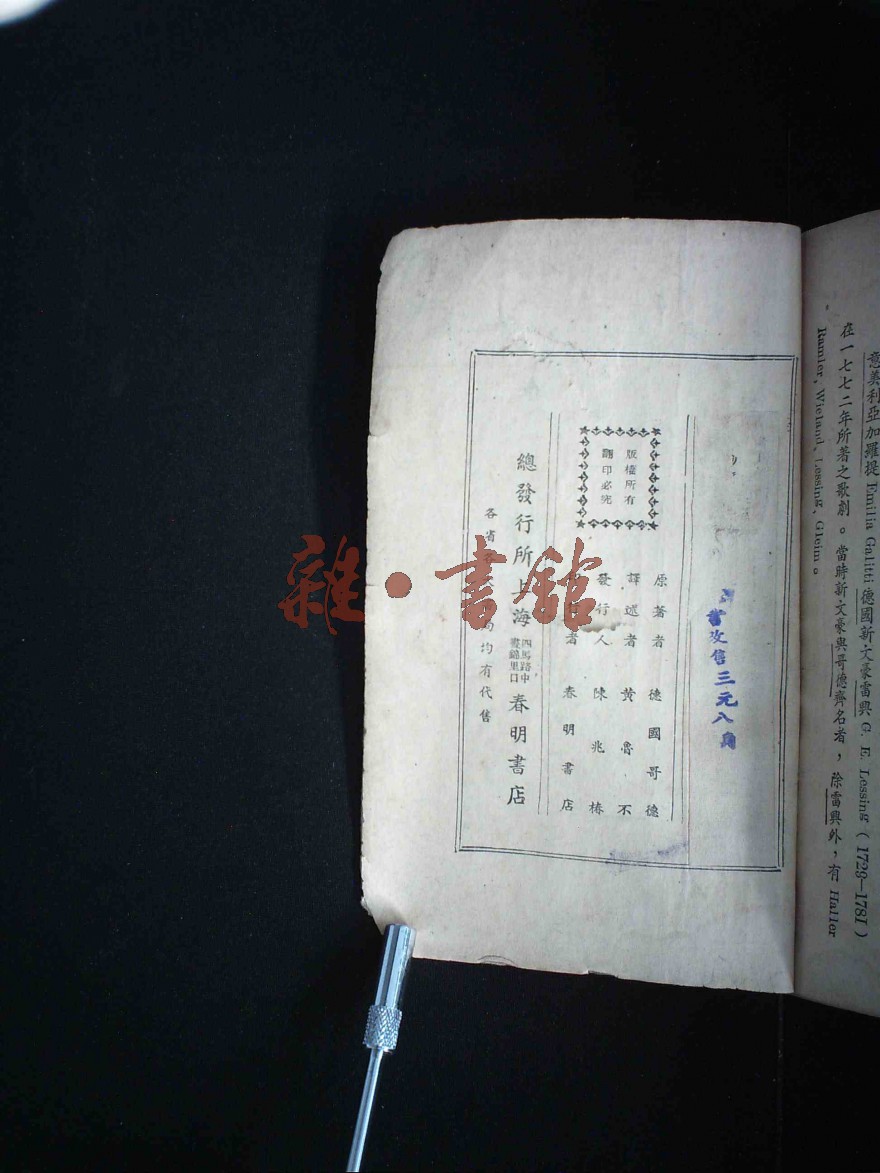 意美利亞加羅提 Emilia Galitti 德國新文豪雷興 G. E. Lessing (1729—1781)
在一七七二年所著之歌劇。當時新文豪與哥德齊名者，除雷興外，有 Haller
Ramler, Wieland, Lessing, Gleim。
實改售三元八角
原著者 德國哥德
譯述者 黄魯不
發行人 陳兆椿
者 春明書店
版權所有
翻印必究
總發行所上海 四馬路中 晝錦里口 春明書店
各省 均有代售
雜·書館